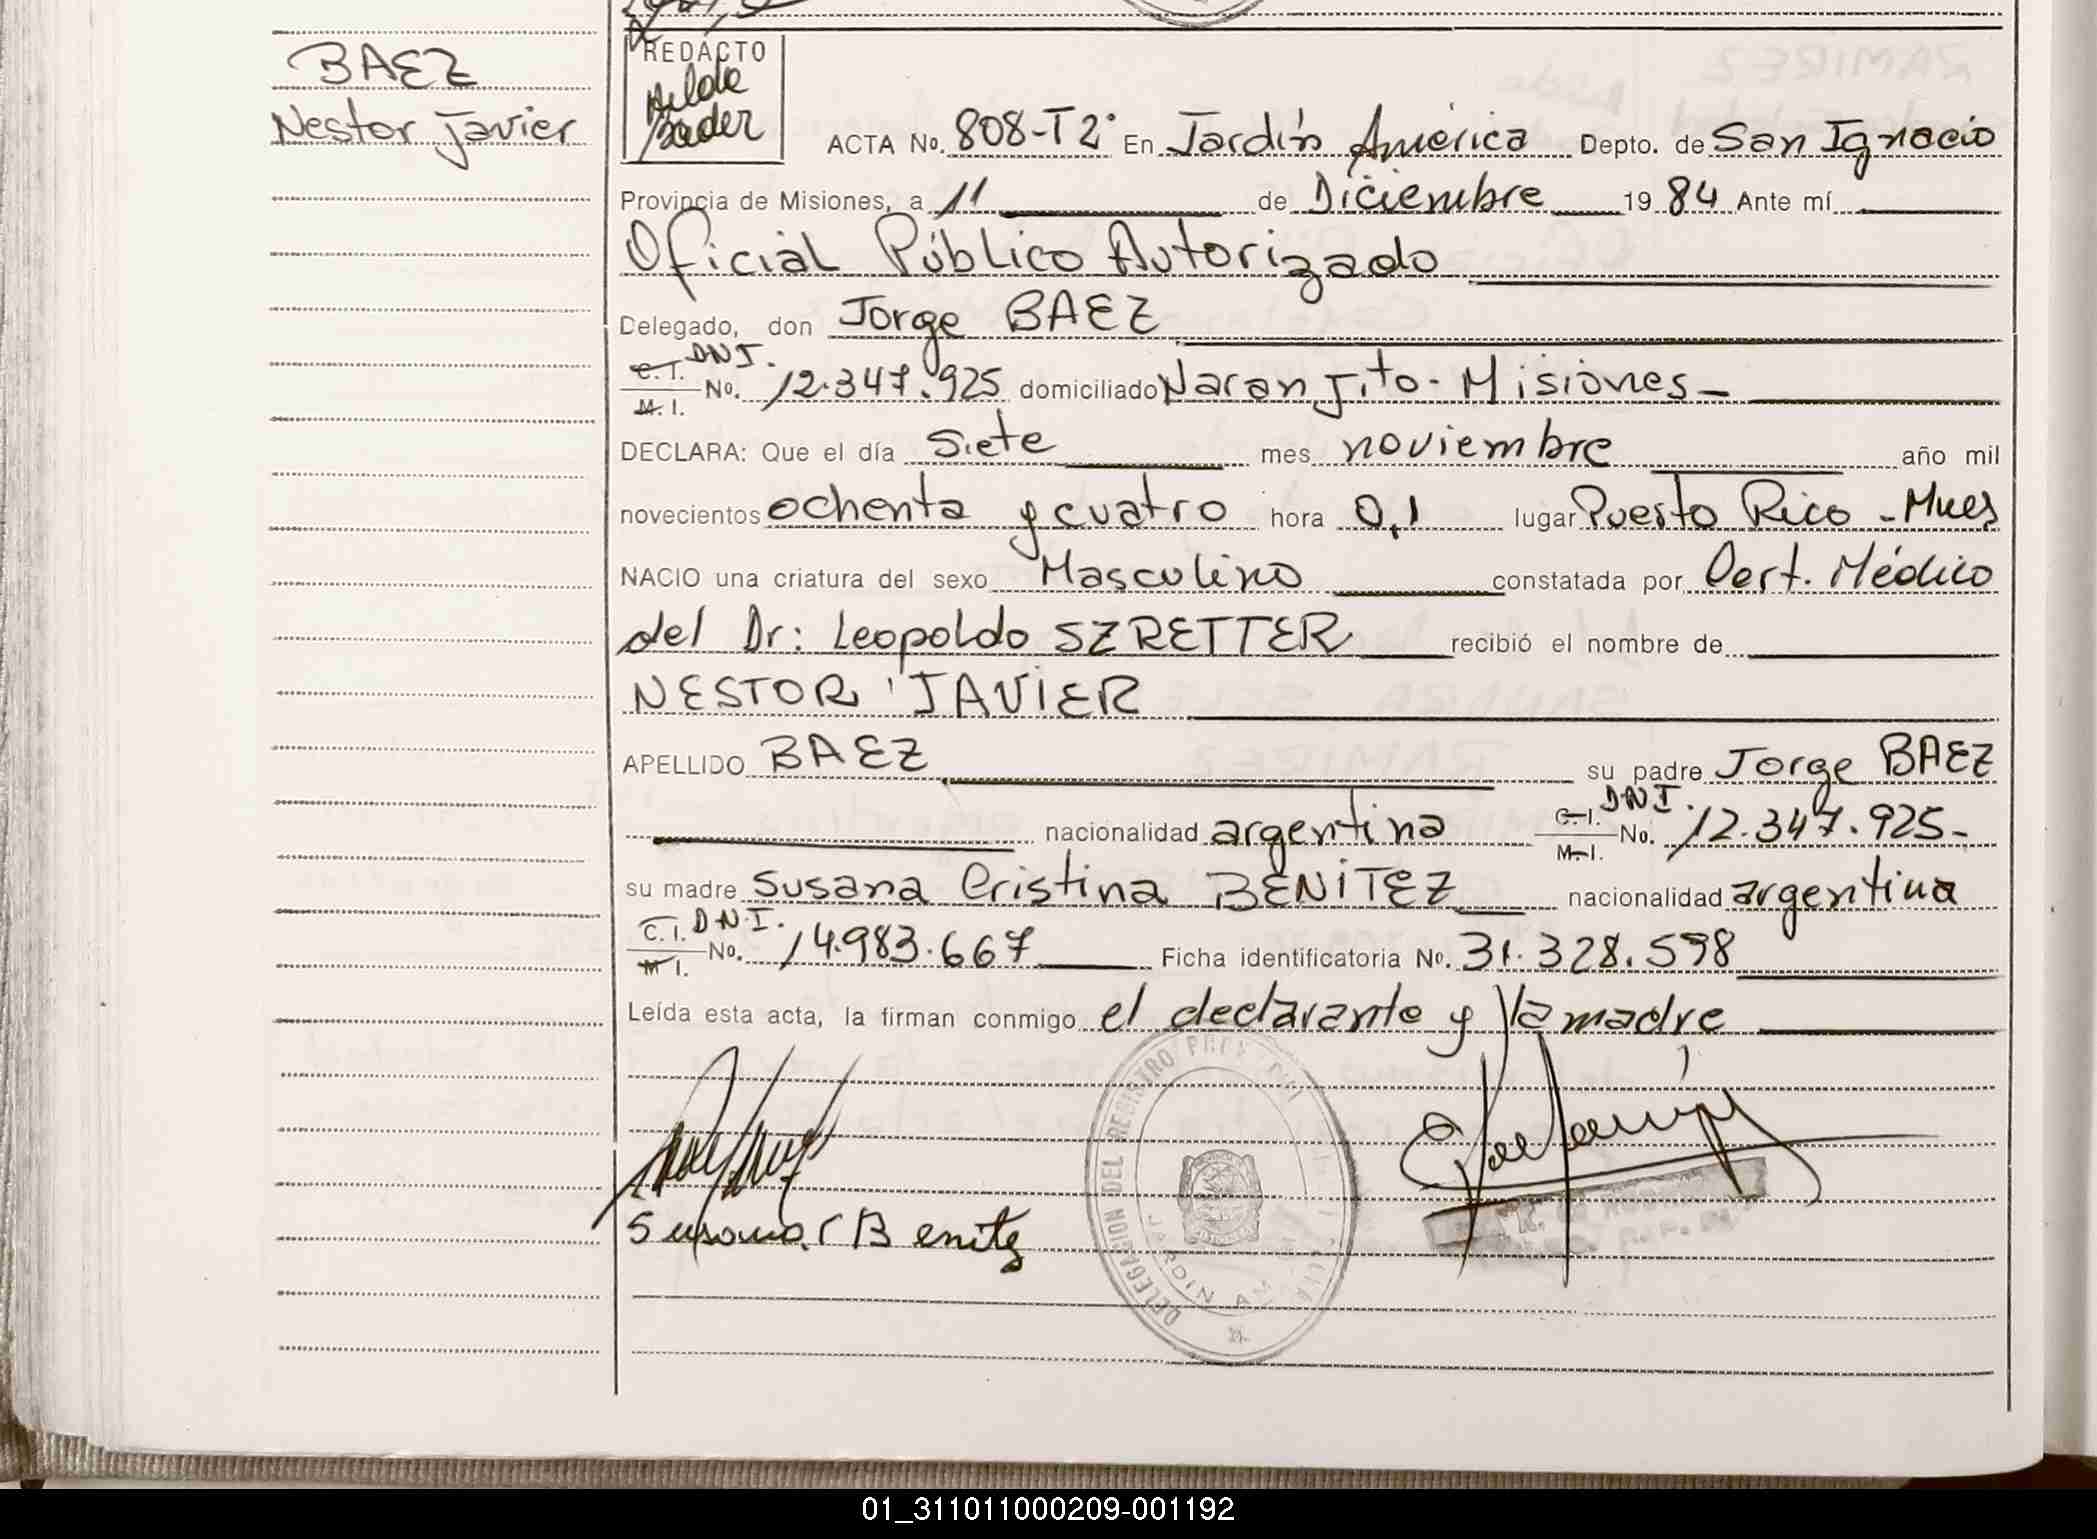 BAEZ
Nestor Javier
REDACTO
Hilde
Bader
ACTA No. 808-T2° En Jardín América Depto. de San Ignacio
Provincia de Misiones, a 11 de Diciembre 1984 Ante mí
Oficial Público Autorizado
Delegado, don Jorge BAEZ
C.I. DNI. M.I. No. 12.347.925 domiciliado Naranjito - Misiones -
DECLARA: Que el día Siete mes noviembre año mil
novecientos ochenta y cuatro hora 0,1 lugar Puesto Rico - Mnes
NACIO una criatura del sexo Masculino constatada por Cert. Médico
del Dr: Leopoldo SZRETTER recibió el nombre de
NESTOR JAVIER
APELLIDO BAEZ su padre Jorge BAEZ
nacionalidad argentina C.I. DNI. M.I. No. 12.347.925-
su madre Susana Cristina BENÍTEZ nacionalidad argentina
C.I. D.N.I. M.I. No. 14.983.667 Ficha identificatoria No. 31.328.598
Leída esta acta, la firman conmigo el declarante y la madre
Susana C Benitez
DELEGACION DEL REGISTRO
JARDIN AM
01_311011000209-001192